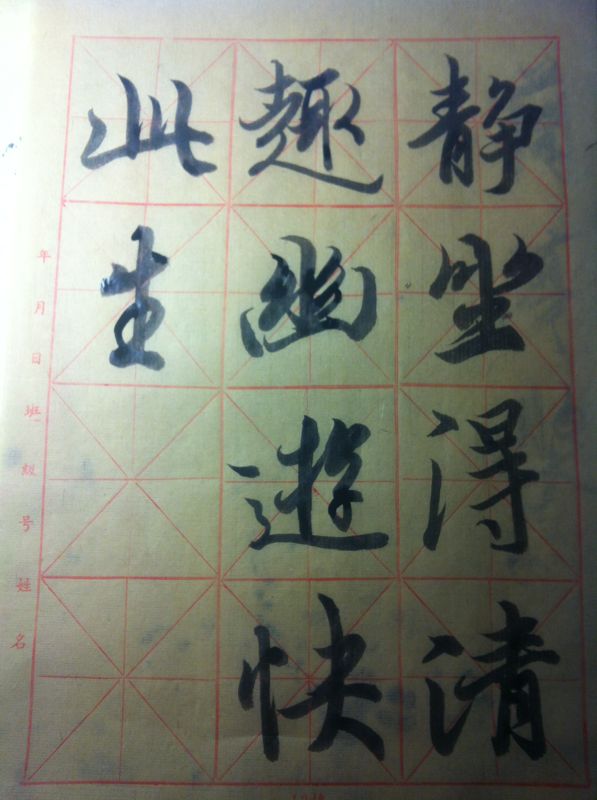 静坐得清
趣幽遊快
此生
年月日班级号姓名